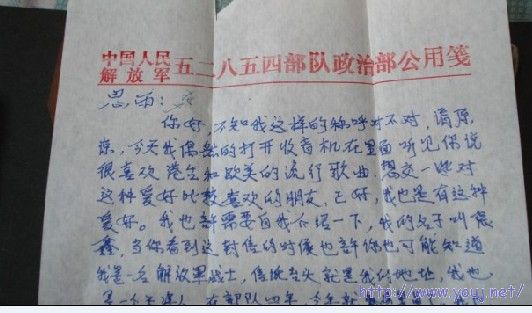 中国人民
解放军 五二八五四部队政治部公用笺
思雨:
你好,不知我这样的称呼对不对,请原
谅,今天我偶然的打开收音机在里面听见你说
很喜欢港台和欧美的流行歌曲,想交一些对
这种爱好比较喜欢的朋友,正好,我也是有这种
爱好。我也许需要自我介绍一下,我的名字叫
鑫,当你看到这封信的时候也许你也可能知道
我是一名解放军战士,信纸
是一个 人,在部队四年,今年
http://www.youj.net/